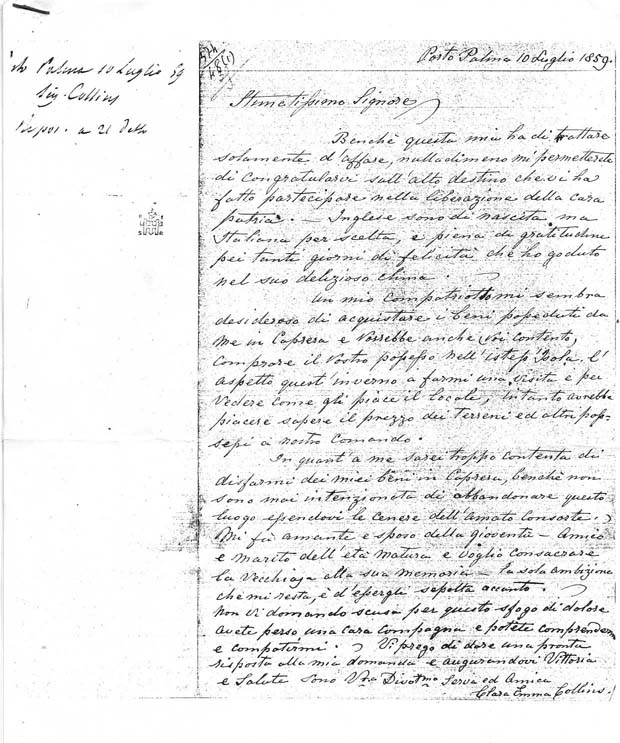 Palma 10 Luglio 59
Sig. Collins
Rispos. a 21 detto
Porto Palma 10 Luglio 1859.
Stimatissimo Signore
Benchè questa mia ha di trattare
solamente d'affare, nulladimeno mi permetterete
di congratularvi sull'alto destino che vi ha
fatto partecipare nella liberazione della cara
patria. — Inglese sono di nascita ma
Italiana per scelta, e piena di gratitudine
pei tanti giorni di felicità che ho goduto
nel suo delizioso clima.
Un mio compatriotto mi sembra
desideroso di acquistare i beni posseduti da
me in Caprera e vorrebbe anche (Voi contento)
comprare il Vostro possesso nell'istess' Isola. L'
aspetto quest'inverno a farmi una visita e per
vedere come gli piace il locale, intanto avrebbe
piacere sapere il prezzo dei terreni ed altri pos-
sessi a nostro comando.
In quant'a me sarei troppo contenta di
disfarmi dei miei beni in Caprera, benchè non
sono mai intenzionata di abbandonare questo
luogo essendovi le Cenere dell'amato Consorte.
Mi fù amante e sposo della gioventù — Amico
e marito dell'età matura e voglio consacrare
la Vecchiaja alla sua memoria — la sola ambizione
che mi resta, è d'essergli sepolta accanto.
Non vi domando scusa per questo sfogo di dolore
avete perso una cara Compagna e potete comprendere
e compatirmi. Vi prego di dare una pronta
risposta alla mia domanda e augurandovi Vittoria
e Salute sono Vra Divotma Serva ed Amica
Clara Emma Collins.